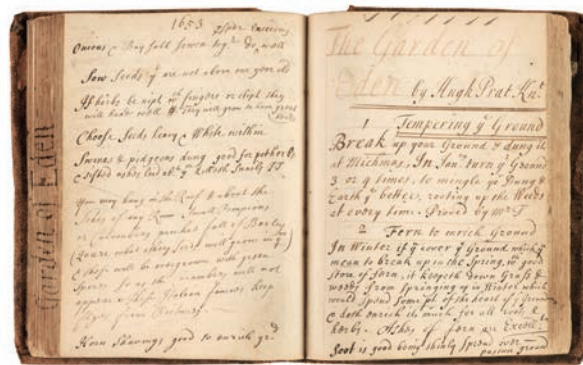 1653
Onions & Bay salt sown tog.r do well
Sow Seeds yt are not above one year old
If herbs be nipt wth fingers or clipt they
will
They will grow to have great
Choose Seeds heavy & White within
Swines & pidgeons dung good for pothorbs
& sifted ashes laid at ye
You may hang in the Roof & about the
Sides of any Room Small Pompions
or Cowcumbers pricked full of Barley
& these will be overgrown with green
Spires so as the
appear
Horn Shavings good to enrich gr.d
Garden of Eden
The Garden of
Eden by Hugh Prat Knt.
1 Tempering ye Ground
Break up your Ground & dung it
at Michmas. In Janr. turn ye Ground
3 or 4 times, to mingle ye Dung &
Earth ye better, rooting up the Weeds
at every time. Proved by mr T
2 Fern to enrich Ground
In Winter if ye cover ye Ground which ye
mean to break up in the Spring, wth good
store of fern, it keepeth down Grass &
weeds from springing up in Winter which
would spend some pt. of the heart of ye Ground
& doth enrich it much for all roots &
herbs. Ashes of fern are Excell.t
Soot is good being thinly spread over
ground